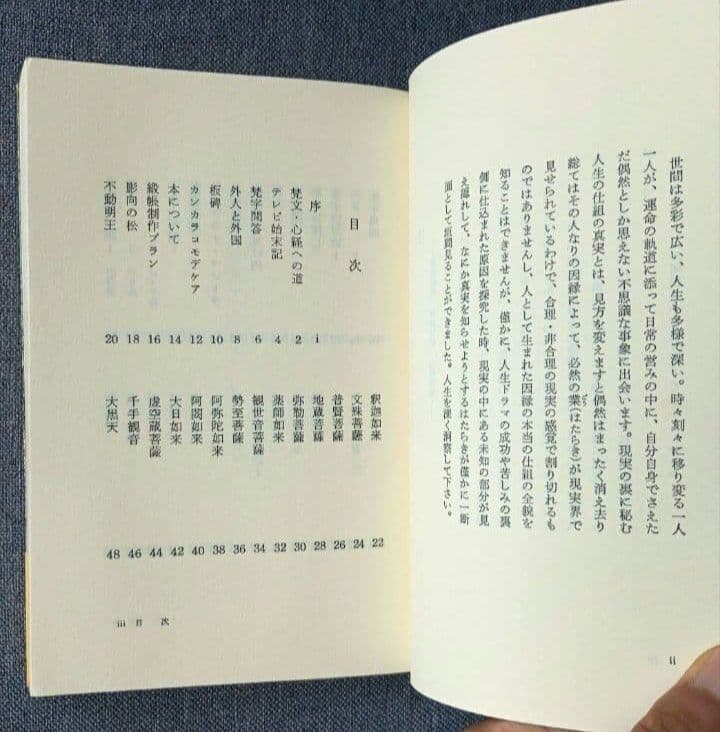 世間は多彩で広い、人生も多様で深い。時々刻々に移り変る一人
一人が、運命の軌道に添って日常の営みの中に、自分自身でさえた
だ偶然としか思えない不思議な事象に出会います。現実の裏に秘む
人生の仕組の真実とは、見方を変えますと偶然はまったく消え去り
総てはその人なりの因縁によって、必然の業(はたらき)が現実界で
見せられているわけで、合理・非合理の現実の感覚で割り切れるも
のではありませんし、人として生まれた因縁の本当の仕組の全貌を
知ることはできませんが、僅かに、人生ドラマの成功や苦しみの裏
側に仕込まれた原因を探究した時、現実の中にある未知の部分が見
え隠れして、なにか真実を知らせようとするはたらきが僅かに一断
面として垣間見ることができました。人生を深く洞察して下さい。
ii
目次
序 i
梵文・心経への道 2
テレビ始末記 4
梵字問答 6
外人と外国 8
板碑 10
カンカラコモデケア 12
本について 14
緞帳制作プラン 16
影向の松 18
不動明王 20
釈迦如来 22
文殊菩薩 24
普賢菩薩 26
地蔵菩薩 28
弥勒菩薩 30
薬師如来 32
観世音菩薩 34
勢至菩薩 36
阿弥陀如来 38
阿閦如来 40
大日如来 42
虚空蔵菩薩 44
千手観音 46
大黒天 48
iii 目次